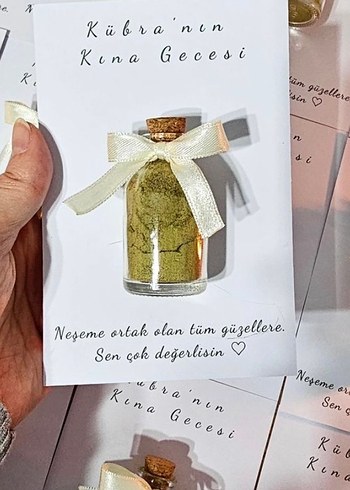 Kübra'nın
Kına Gecesi
Neşeme ortak olan tüm güzellere.
Sen çok değerlisin ♡
tüm güzellere
isin ♡
Kübra'nın
Kına Gecesi
Neşeme
Sen ç
Kü
Kına